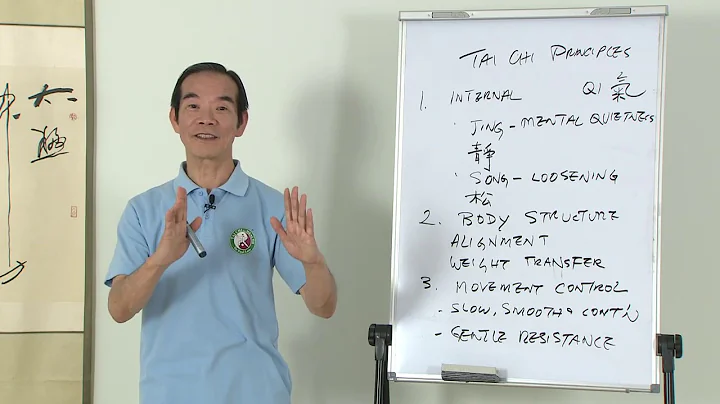 太極
TAI CHI PRINCIPLES
1. INTERNAL QI 氣
· JING - MENTAL QUIETNESS
靜
· SONG - LOOSENING
松
2. BODY STRUCTURE
ALIGNMENT
WEIGHT TRANSFER
3. MOVEMENT CONTROL
- SLOW, SMOOTH & CONT'N
- GENTLE RESISTANCE